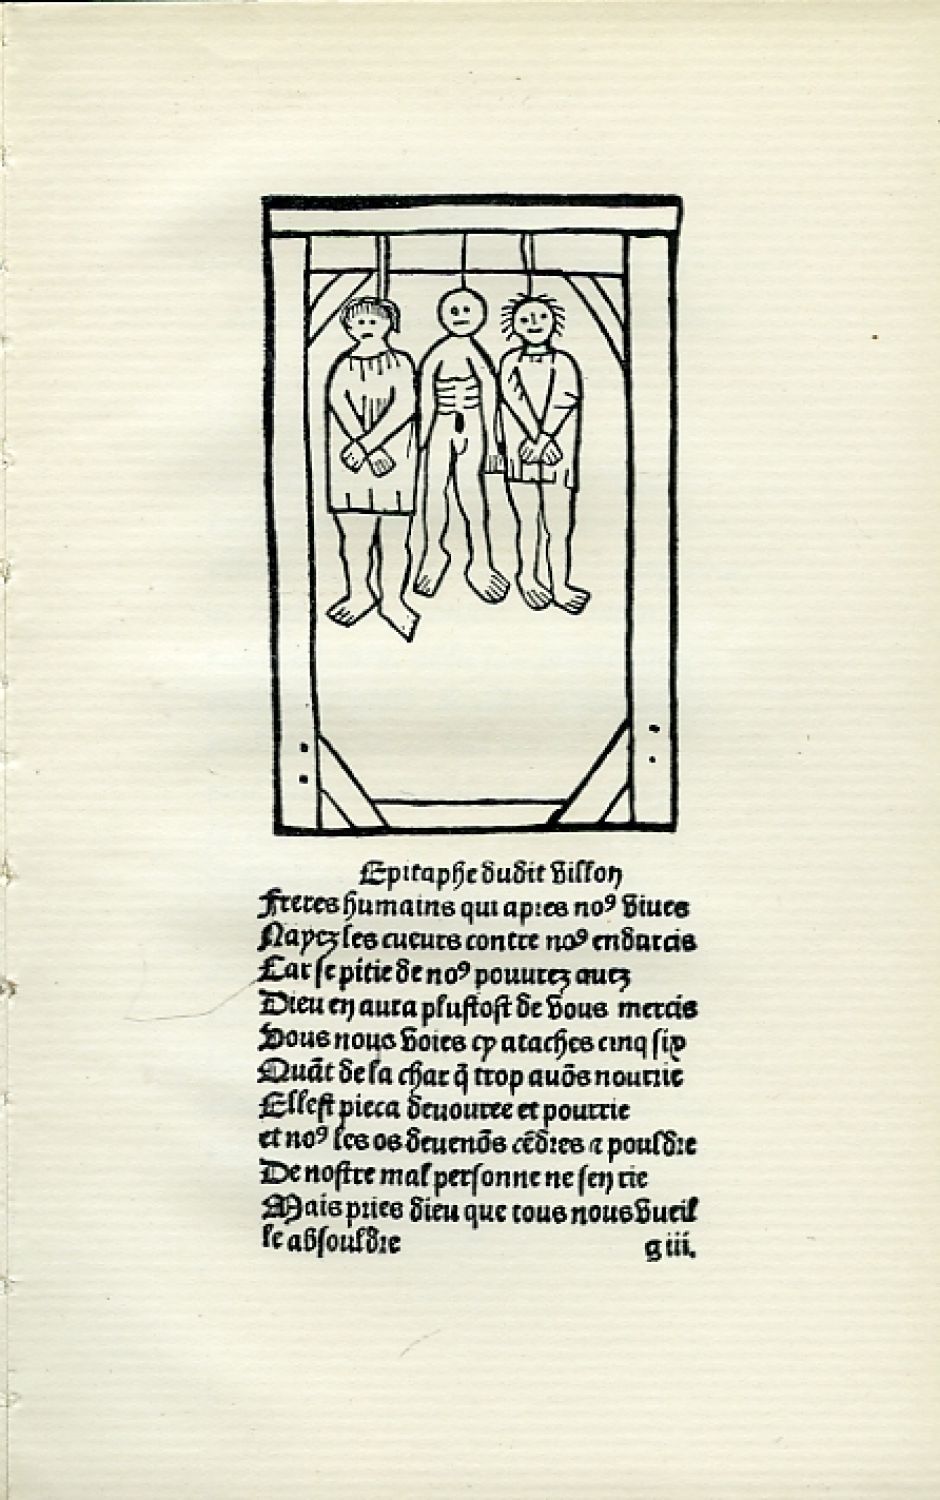 Epitaphe dudit villon
Freres humains qui apres noꝰ viues
Nayez les cueurs contre noꝰ endurcis
Car se pitie de noꝰ pouurez auez
Dieu en aura plustost de vous mercis
Vous nous voies cy ataches cinq six
Quāt de la char q̄ trop auōs nourrie
Ellest pieca deuouree et pourrie
et noꝰ les os deuenōs cēdres ⁊ pouldre
De nostre mal personne ne sen rie
Mais pries dieu que tous nous vueil
le absouldre
g iii.